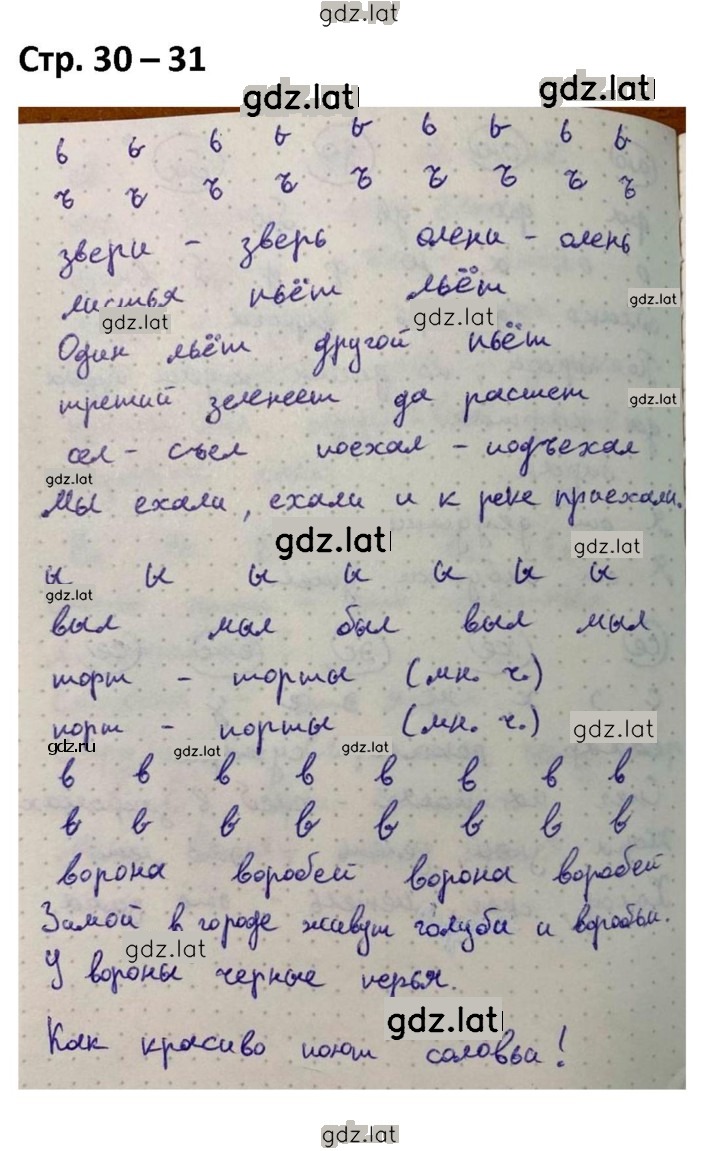 gdz.lat
Стр. 30 – 31
gdz.lat gdz.lat
ь ь ь ь ь ь ь ь ь
ъ ъ ъ ъ ъ ъ ъ ъ ъ
звери – зверь олени – олень
листья пьёт льёт
gdz.lat gdz.lat gdz.lat
Один льёт другой пьёт
третий зеленеет да растет
gdz.lat
сел – съел поехал – подъехал
gdz.lat
Мы ехали, ехали и к реке приехали.
gdz.lat gdz.lat
ы ы ы ы ы ы ы
gdz.lat
выл мыл был выл мыл
торт – торты (мн. ч.)
порт – порты (мн. ч.)
gdz.ru gdz.lat gdz.lat gdz.lat
в в в в в в в в
в в в в в в в в
ворона воробей ворона воробей
Зимой в городе живут голуби и воробьи.
gdz.lat
У вороны черные перья.
gdz.lat
Как красиво поют соловьи!
gdz.lat